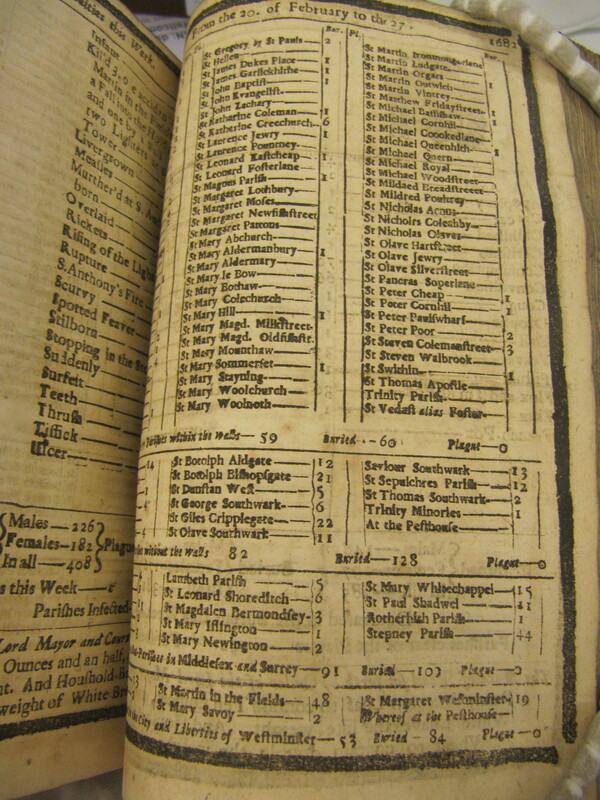 Infant
Kil'd
Martin in the
a Fall
and one by a
two Lighters
Tower
Livergrown
Measles
Murther'd at S.
born
Overlaid
Rickets
Rising of the Lights
Rupture
S. Anthony's Fire
Scurvy
Spotted Feaver
Stilborn
Stopping in the
Suddenly
Surfeit
Teeth
Thrush
Tissick
Ulcer
Males — 226
Females — 182
In all — 408
Plague
this Week
Parishes Infected
Lord Mayor and Court
Ounces and an half,
And Houshold-B
weight of White
From the 20. of February to the 27. 1682
Bur. Pl.
St Gregory by St Pauls — 2
St Hellen
St James Dukes Place — 1
St James Garlickhithe — 1
St John Baptist — 1
St John Evangelist
St John Zachary
St Katharine Coleman — 1
St Katharine Creechurch — 6
St Laurence Jewry — 1
St Laurence Pountney
St Leonard Eastcheap — 1
St Leonard Fosterlane
St Magnus Parish — 1
St Margaret Lothbury
St Margaret Moses
St Margaret Newfishstreet
St Margaret Pattons
St Mary Abchurch
St Mary Aldermanbury — 1
St Mary Aldermary
St Mary le Bow
St Mary Bothaw
St Mary Colechurch
St Mary Hill — 1
St Mary Magd. Milkstreet
St Mary Magd. Oldfishstr.
St Mary Mounthaw
St Mary Somerset — 1
St Mary Stayning
St Mary Woolchurch
St Mary Woolnoth
Bur.
St Martin Ironmongerlane
St Martin Ludgate
St Martin Orgars
St Martin Outwich
St Martin Vintrey
St Matthew Fridaystreet
St Michael Bassishaw
St Michael Cornhill
St Michael Crookedlane
St Michael Queenhith
St Michael Quern
St Michael Royal
St Michael Woodstreet
St Mildred Breadstreet
St Mildred Poultrey
St Nicholas Acons
St Nicholas Coleabby
St Nicholas Olaves
St Olave Hartstreet
St Olave Jewry
St Olave Silverstreet
St Pancras Soperlane
St Peter Cheap — 1
St Peter Cornhil — 1
St Peter Paulswharf
St Peter Poor — 2
St Steven Colemanstreet — 3
St Steven Walbrook
St Swithin — 1
St Thomas Apostle
Trinity Parish
St Vedast alias Foster
Parishes within the walls — 59 Buried — 60 Plague — 0
St Botolph Aldgate — 12
St Botolph Bishopsgate — 21
St Dunstan West — 5
St George Southwark — 6
St Giles Cripplegate — 22
St Olave Southwark — 11
Saviour Southwark — 13
St Sepulchres Parish — 12
St Thomas Southwark — 2
Trinity Minories — 1
At the Pesthouse
without the walls 82 Buried — 128 Plague — 0
Lambeth Parish — 5
St Leonard Shoreditch — 6
St Magdalen Bermondsey — 3
St Mary Islington — 1
St Mary Newington — 2
St Mary Whitechappel — 15
St Paul Shadwel — 11
Rotherhith Parish — 1
Stepney Parish — 44
Parishes in Middlesex and Surrey — 91 Buried — 103 Plague — 0
St Martin in the Fields — 48
St Mary Savoy — 2
St Margaret Westminster — 19
Whereof at the Pesthouse
City and Liberties of Westminster — 53 Buried — 84 Plague — 0